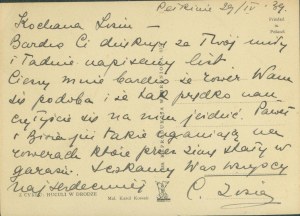 Pałkinie 29/IV - 39.
Kochana Lesiu -
Bardzo Ci dziękuję za Twój miły
i ładnie napisany list
Cieszy mnie bardzo że rower Wam
się podoba i że tak prędko nau
czyłyście się na nim jeździć. Paweł
i takie uganiają na
rowerach które przez zimę stały w
garażu. Ściskamy Was wszyscy
najserdeczniej
C. Zosia
Mal. Karol Kossak